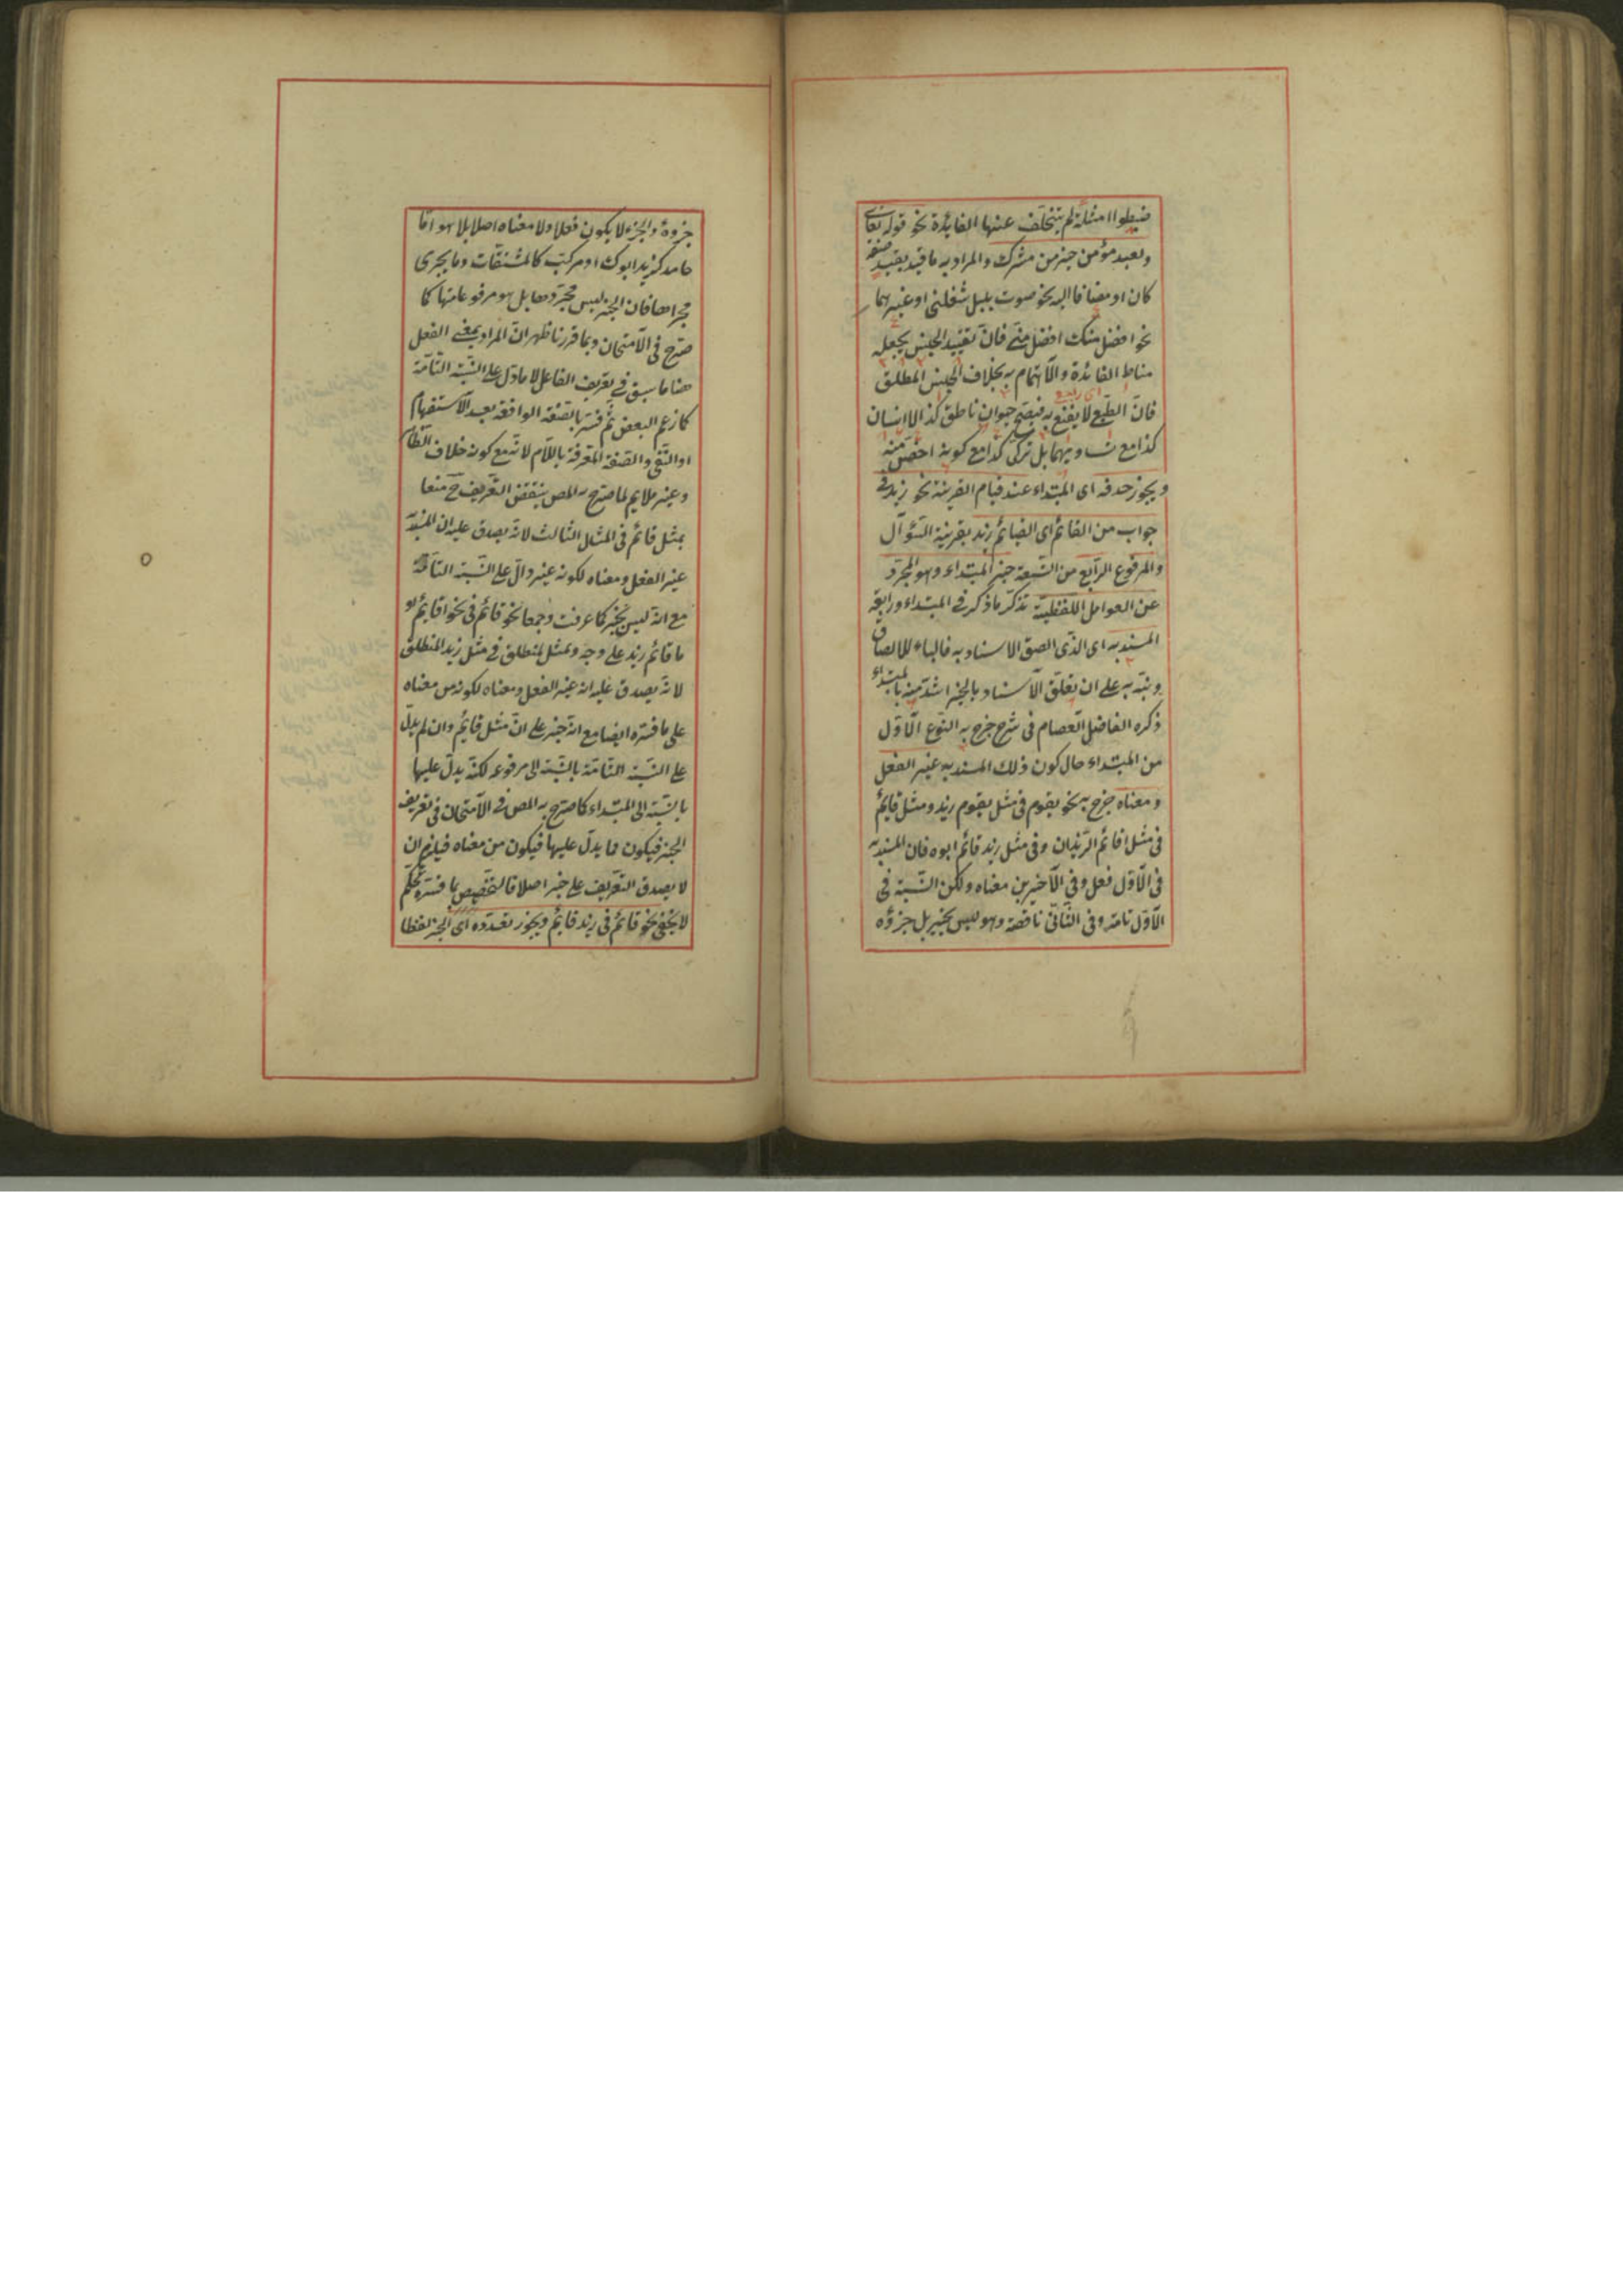 ضبطوا امثلة لم يتخلف عنها الفائدة نحو قوله تعالى
ولعبد مؤمن خير من مشرك والمراد به ما قيد بقيد صفة
كان او مضافا اليه نحو صوت بلبل شغلني او غيرهما
نحو افضل منك افضل مني فان تقييد الجنس يجعله
مناط الفائدة والاهتمام به بخلاف الجنس المطلق
اى
فان الطبع لا يقنع به فيصح حيوان ناطق كذا لا انسان
كذا مع بل تركى كذا مع كونه اخص منه
ويجوز حذفه اى المبتداء عند قيام القرينة نحو زيد فى
جواب من القائم اى القائم زيد بقرينة السؤال
والمرفوع الرابع من التسعة خبر المبتداء وهو المجرد
عن العوامل اللفظية تذكر ما ذكر فى المبتداء ورابعه
المسند به اى الذى الصق الاسناد به فالباء للالصاق
ونبه به على ان تعلق الاسناد بالخبر اشد منه بالمبتداء
ذكره الفاضل العصام فى شرح خرج به النوع الاول
من المبتداء حال كون ذلك المسند به غير الفعل
ومعناه خرج به نحو يقوم فى مثل يقوم زيد ومثل قائم
فى مثل اقائم الزيدان وفى مثل زيد قائم ابوه فان المسند به
فى الاول فعل وفى الاخيرين معناه ولكن النسبة فى
الاول تامة وفى الثانى ناقصة وهو ليس بخبر بل جزؤه
جزوه والجزء لا يكون فعلا ولا معناه اصلا بلا هو اما
جامد كزيد ابوك او مركب كالمشتقات وما يجرى
مجراها فان الخبر ليس مجردها بل هو مرفوعاتها كما
صرح فى الامتحان وبما قررنا ظهر ان المراد بمعنى الفعل
هنا ما سبق فى تعريف الفاعل لا ما دل على النسبة التامة
كما زعم البعض ثم فسر بالصفة الواقعة بعد الاستفهام
او النفى والصفة المعرفة باللام لانه مع كونه خلاف الظاهر
وغير ملايم لما صرح به المص ينتقض التعريف ح منعا
بمثل قائم فى المثل الثالث لانه يصدق عليه ان المسند به
غير الفعل ومعناه لكونه غير دال على النسبة التامة
مع انه ليس بخبر كما عرفت وجمعا نحو قائم فى نحو اقائم او
ما قائم زيد على وجه وبمثل المنطلق فى مثل زيد المنطلق
لانه يصدق عليه انه غير الفعل ومعناه لكونه من معناه
على ما فسره ايضا مع انه خبر على ان مثل قائم وان لم يدل
على النسبة التامة بالنسبة الى مرفوعه لكنه يدل عليها
بالنسبة الى المبتداء كما صرح به المص فى الامتحان فى تعريف
الخبر فيكون مما يدل عليها فيكون من معناه فيلزم ان
لا يصدق التعريف على خبر اصلا فالتخصيص بما فسره تحكم
لا يخفى نحو قائم فى زيد قائم ويجوز تعدده اى الخبر لفظا